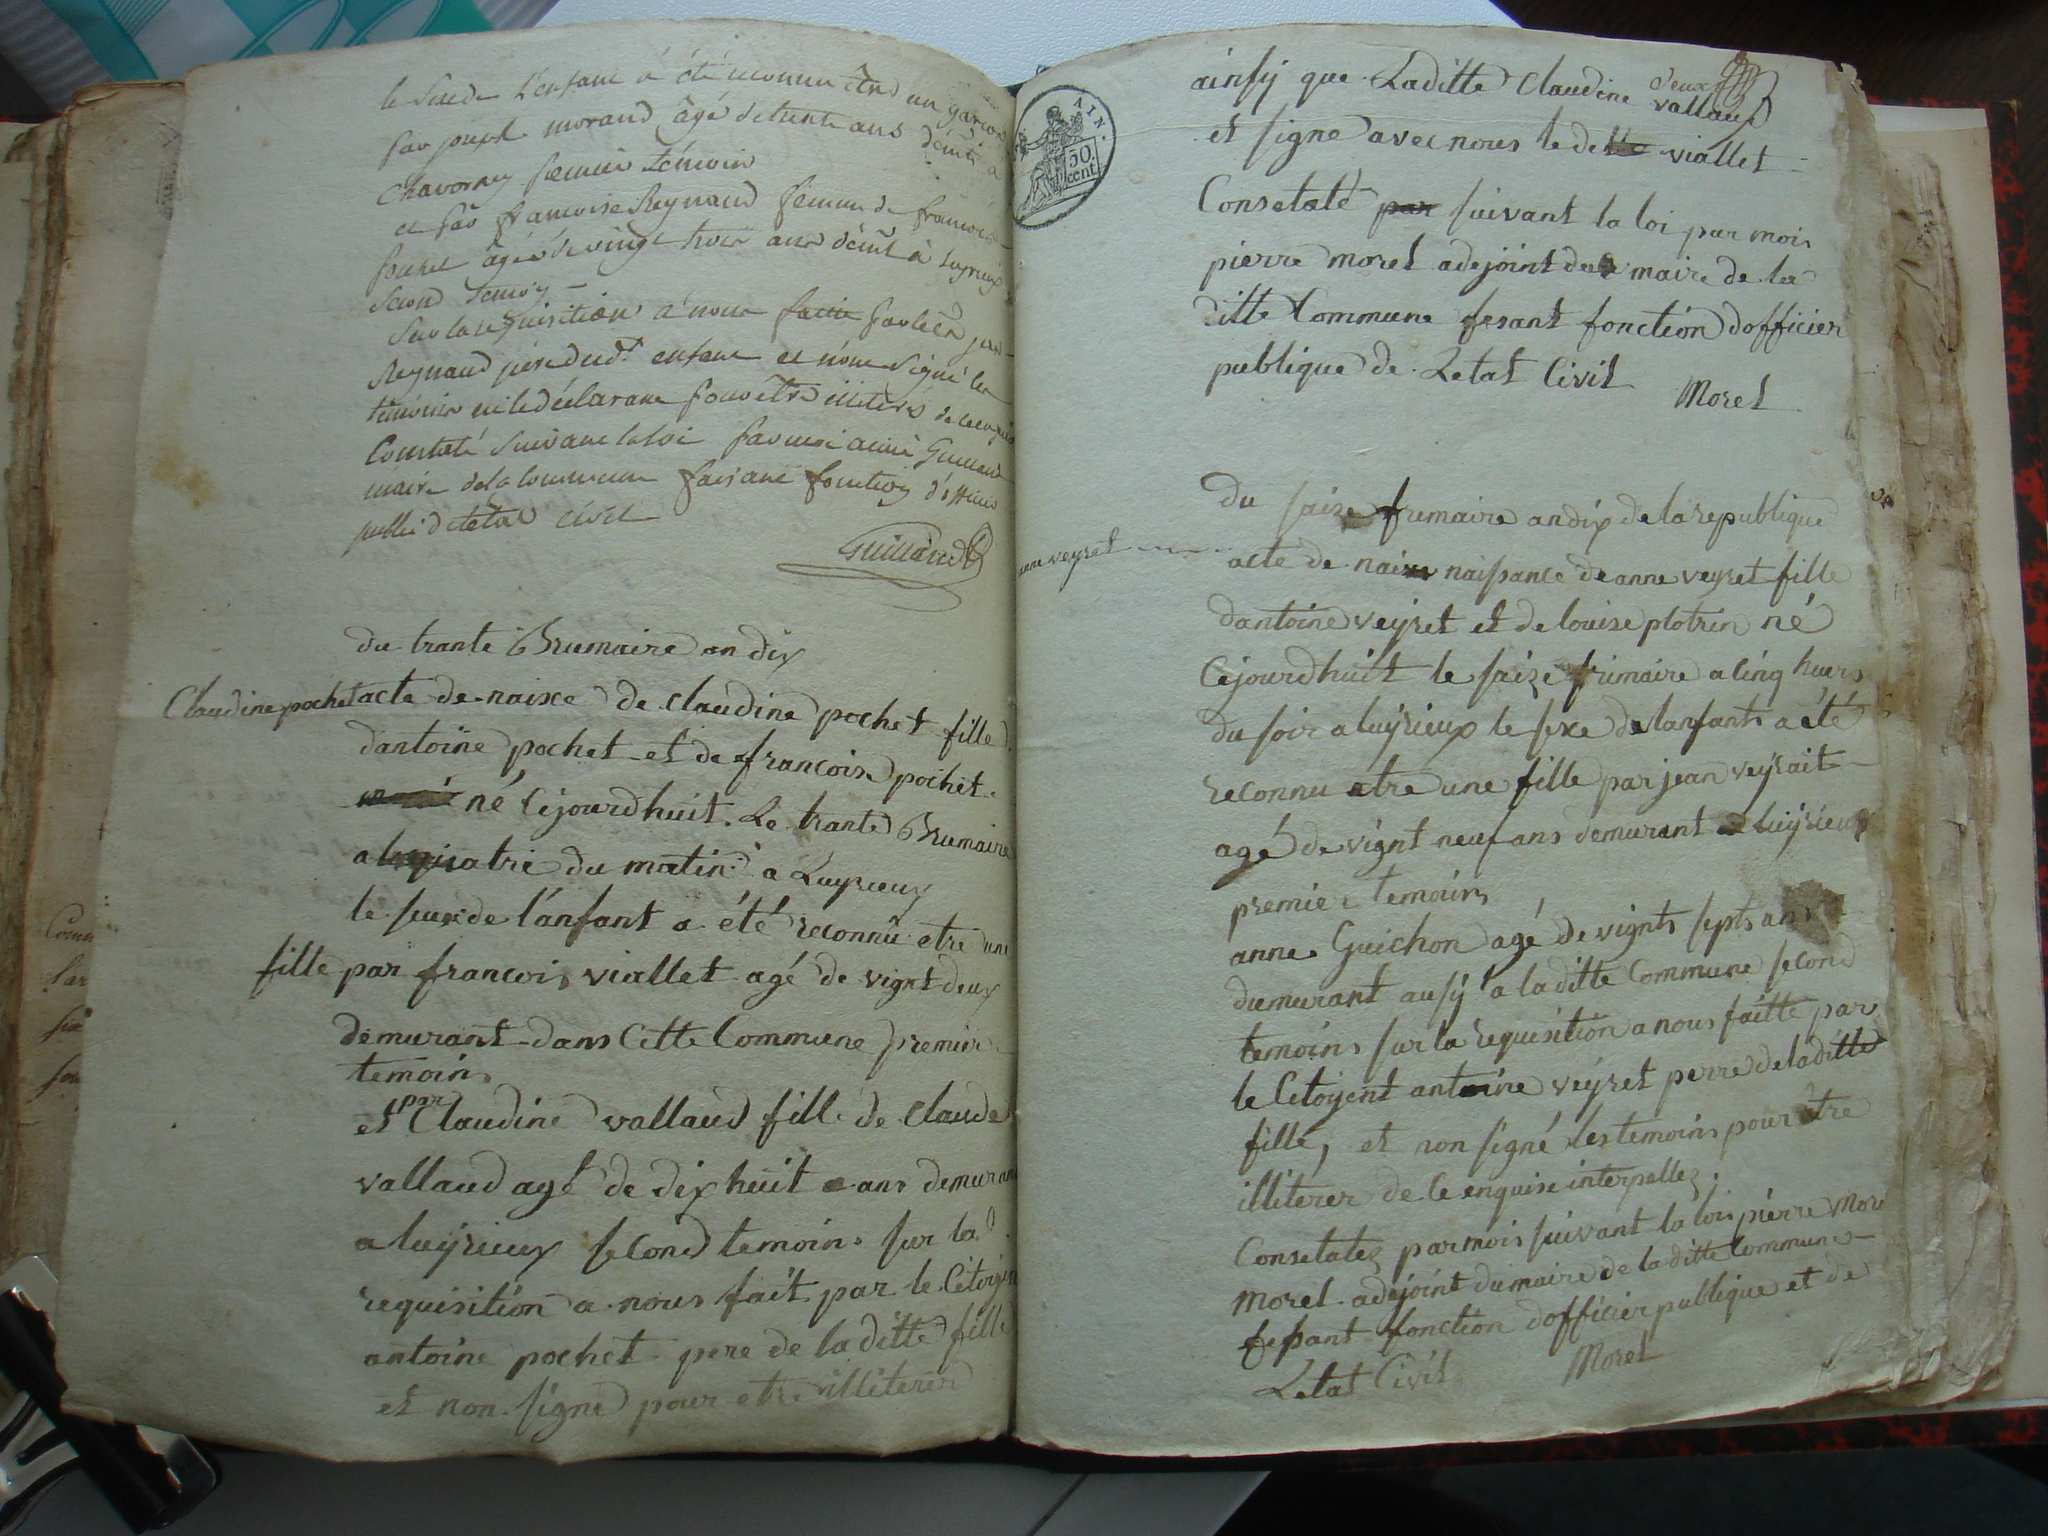 le sixe de L'enfant a été reconnu être un garçon
par joseph morand âgé de trente ans demt a
Chavornay premier témoin
et par francoise Reynaud femme de francois
pochet âgée de vingt trois ans demt à Luyrieux
second temoin
Sur la requisition à nous faitte par le Cen jean
Reynaud père dudt enfant et n'ont signé les
témoins qui le déclarant pour être illiterés de ce enquis
Constaté suivant la loi par moi aimé Guilland
maire de la commune faisant fonction d'officier
public d l'état civil
Guilland
du trante Brumaire an dix
Claudine pochet
acte de naisce de claudine pochet fille
dantoine pochet et de francoise pochet
né Cejourdhuit. Le trante Brumaire
a quatre du matin a Luyrieux
le sexe de l'anfant a été reconnu etre une
fille par francois viallet agé de vignt deux
demurant dans Cette Commune premier
temoin
et par Claudine vallaud fille de Claude
vallaud agé de dix huit ans demurant
a luyrieux second temoin sur la
requisition a nous fait par le Citoyen
antoine pochet pere de la ditte fille
et non signé pour etre illiterer
AIN.
50
cent
ainsy que Laditte Claudine vallaud
et signe avec nous le dette viallet
Consetaté par suivant la loi par mois
pierre moret adejoint du maire de la
ditte Commune fesant fonction dofficier
publique de Letat Civil
Moret
anne veyret
Du saize frimaire an dix de la republique
acte de naisance de anne veyret fille
dantoine veyret et de louise plotrin né
Cejourdhuit le saize frimaire a Cinq huers
du soir a luyrieux le sexe de lanfant a été
reconnu etre une fille par jean veyrait
agé de vignt neuf ans demurant a luyrieux
premier temoins
anne Guichon agé de vignts septs ans
dumurant ausy a la ditte Commune second
temoins sur la requisition a nous faitte par
le Citoyent antoine veyret perre de laditte
fille, et non signé les temoins pour etre
illiterer de Ce enquise interpellez.
Consetatez par mois suivant la loi pierre More
Moret adejoint du maire de la ditte Commune
fesant fonction dofficier publique et de
Letat Civil
Moret